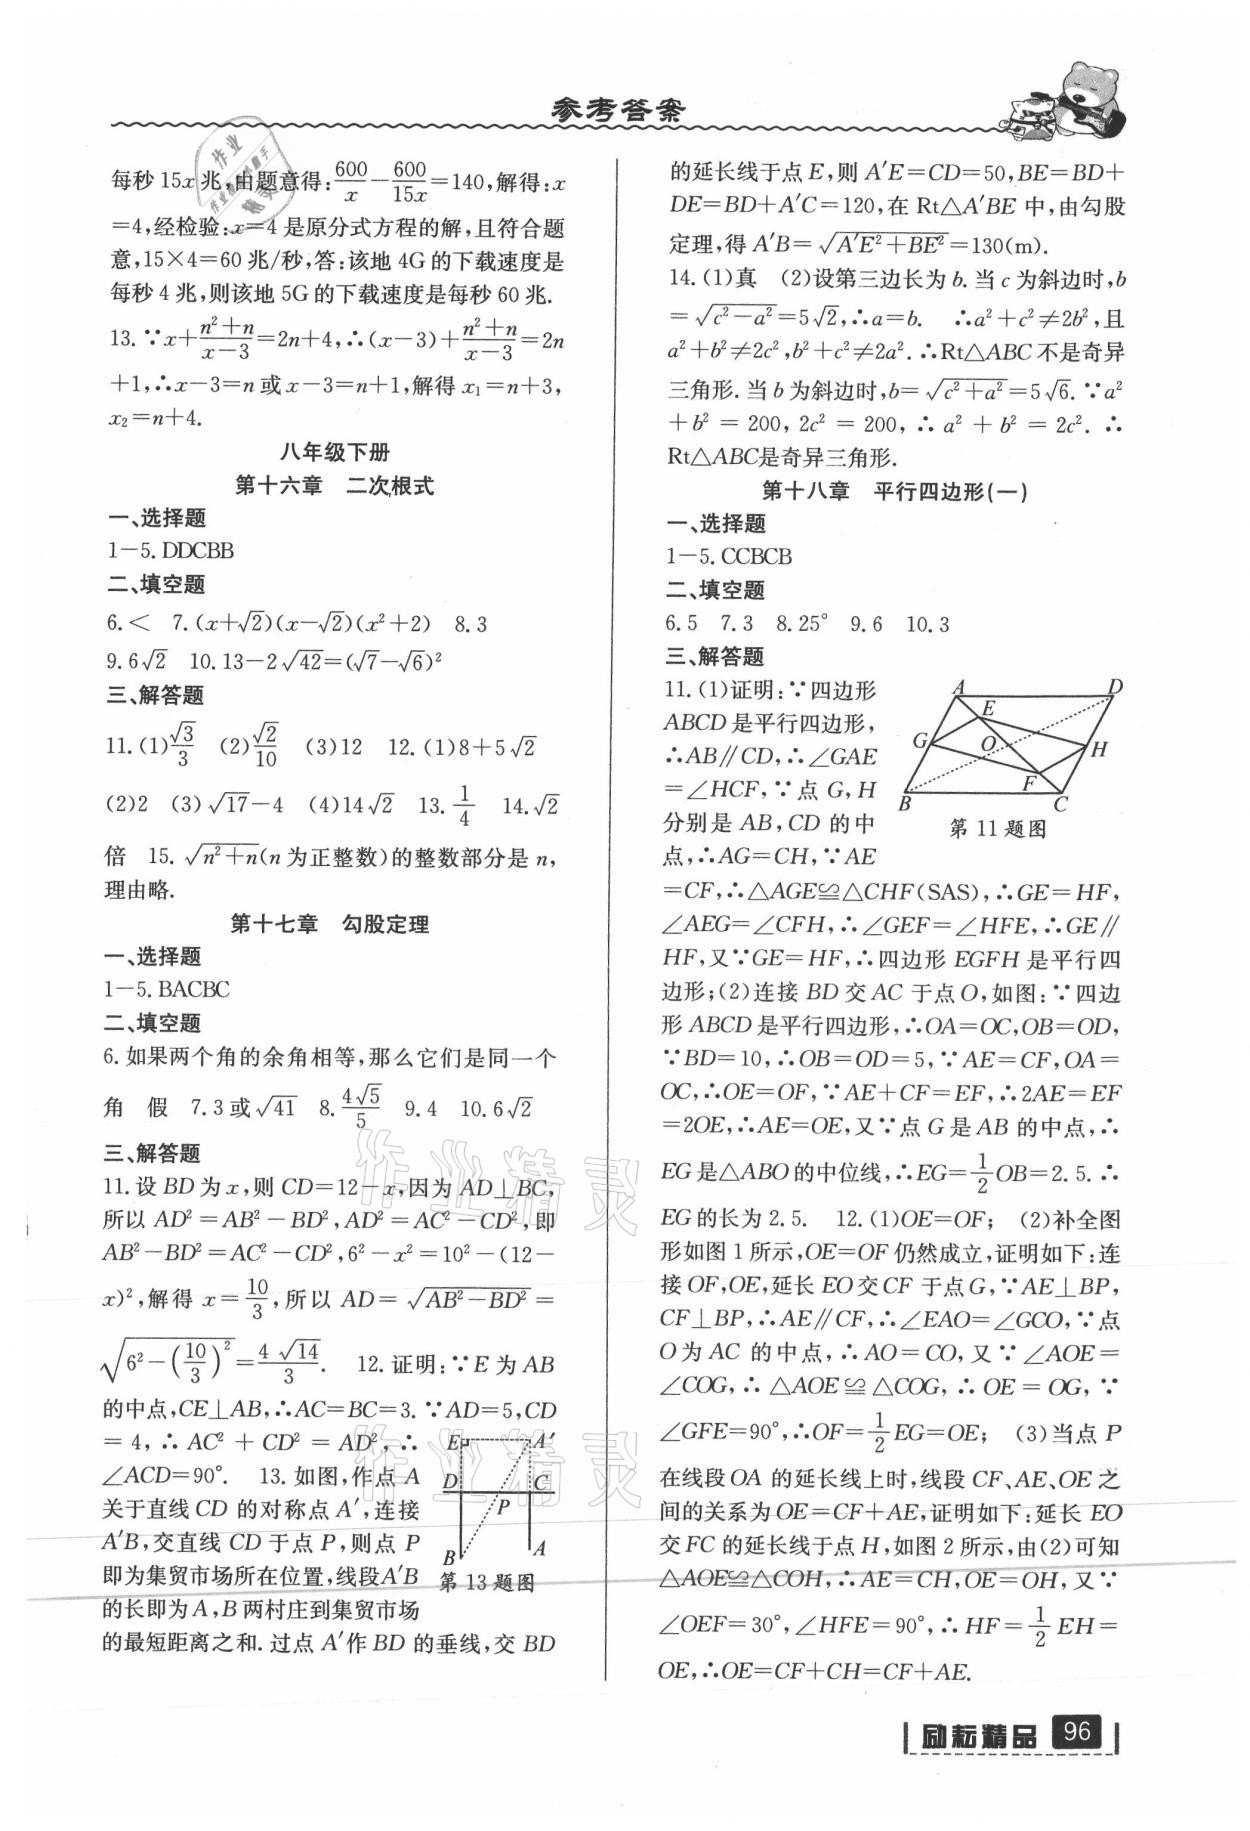 参考答案
每秒15x兆,由题意得:600/x-600/15x=140,解得:x
=4,经检验:x=4是原分式方程的解,且符合题
意,15×4=60兆/秒,答:该地4G的下载速度是
每秒4兆,则该地5G的下载速度是每秒60兆.
13.∵x+(n²+n)/(x-3)=2n+4,∴(x-3)+(n²+n)/(x-3)=2n
+1,∴x-3=n或x-3=n+1,解得x₁=n+3,
x₂=n+4.
八年级下册
第十六章 二次根式
一、选择题
1-5.DDCBB
二、填空题
6.< 7.(x+√2)(x-√2)(x²+2) 8.3
9.6√2 10.13-2√42=(√7-√6)²
三、解答题
11.(1)√3/3 (2)√2/10 (3)12 12.(1)8+5√2
(2)2 (3)√17-4 (4)14√2 13.1/4 14.√2
倍 15.√(n²+n)(n为正整数)的整数部分是n,
理由略.
第十七章 勾股定理
一、选择题
1-5.BACBC
二、填空题
6.如果两个角的余角相等,那么它们是同一个
角 假 7.3或√41 8.4√5/5 9.4 10.6√2
三、解答题
11.设BD为x,则CD=12-x,因为AD⊥BC,
所以AD²=AB²-BD²,AD²=AC²-CD²,即
AB²-BD²=AC²-CD²,6²-x²=10²-(12-
x)²,解得x=10/3,所以AD=√(AB²-BD²)=
√(6²-(10/3)²)=4√14/3. 12.证明:∵E为AB
的中点,CE⊥AB,∴AC=BC=3.∵AD=5,CD
=4,∴AC²+CD²=AD²,∴
∠ACD=90°. 13.如图,作点A
关于直线CD的对称点A′,连接
A′B,交直线CD于点P,则点P
即为集贸市场所在位置,线段A′B
的长即为A,B两村庄到集贸市场
的最短距离之和.过点A′作BD的垂线,交BD
E A′
D C
P
B A
第13题图
的延长线于点E,则A′E=CD=50,BE=BD+
DE=BD+A′C=120,在Rt△A′BE中,由勾股
定理,得A′B=√(A′E²+BE²)=130(m).
14.(1)真 (2)设第三边长为b.当c为斜边时,b
=√(c²-a²)=5√2,∴a=b. ∴a²+c²≠2b²,且
a²+b²≠2c²,b²+c²≠2a².∴Rt△ABC不是奇异
三角形.当b为斜边时,b=√(c²+a²)=5√6.∵a²
+b²=200,2c²=200,∴a²+b²=2c².∴
Rt△ABC是奇异三角形.
第十八章 平行四边形(一)
一、选择题
1-5.CCBCB
二、填空题
6.5 7.3 8.25° 9.6 10.3
三、解答题
11.(1)证明:∵四边形
ABCD是平行四边形,
∴AB∥CD,∴∠GAE
=∠HCF,∵点G,H
分别是AB,CD的中
点,∴AG=CH,∵AE
A D
E
G O H
F
B C
第11题图
=CF,∴△AGE≌△CHF(SAS),∴GE=HF,
∠AEG=∠CFH,∴∠GEF=∠HFE,∴GE∥
HF,又∵GE=HF,∴四边形EGFH是平行四
边形;(2)连接BD交AC于点O,如图:∵四边
形ABCD是平行四边形,∴OA=OC,OB=OD,
∵BD=10,∴OB=OD=5,∵AE=CF,OA=
OC,∴OE=OF,∵AE+CF=EF,∴2AE=EF
=2OE,∴AE=OE,又∵点G是AB的中点,∴
EG是△ABO的中位线,∴EG=1/2OB=2.5.∴
EG的长为2.5. 12.(1)OE=OF; (2)补全图
形如图1所示,OE=OF仍然成立,证明如下:连
接OF,OE,延长EO交CF于点G,∵AE⊥BP,
CF⊥BP,∴AE∥CF,∴∠EAO=∠GCO,∵点
O为AC的中点,∴AO=CO,又∵∠AOE=
∠COG,∴△AOE≌△COG,∴OE=OG,∵
∠GFE=90°,∴OF=1/2EG=OE; (3)当点P
在线段OA的延长线上时,线段CF、AE、OE之
间的关系为OE=CF+AE,证明如下:延长EO
交FC的延长线于点H,如图2所示,由(2)可知
△AOE≌△COH,∴AE=CH,OE=OH,又∵
∠OEF=30°,∠HFE=90°,∴HF=1/2EH=
OE,∴OE=CF+CH=CF+AE.
励耘精品 96
作业精灵
作业精灵